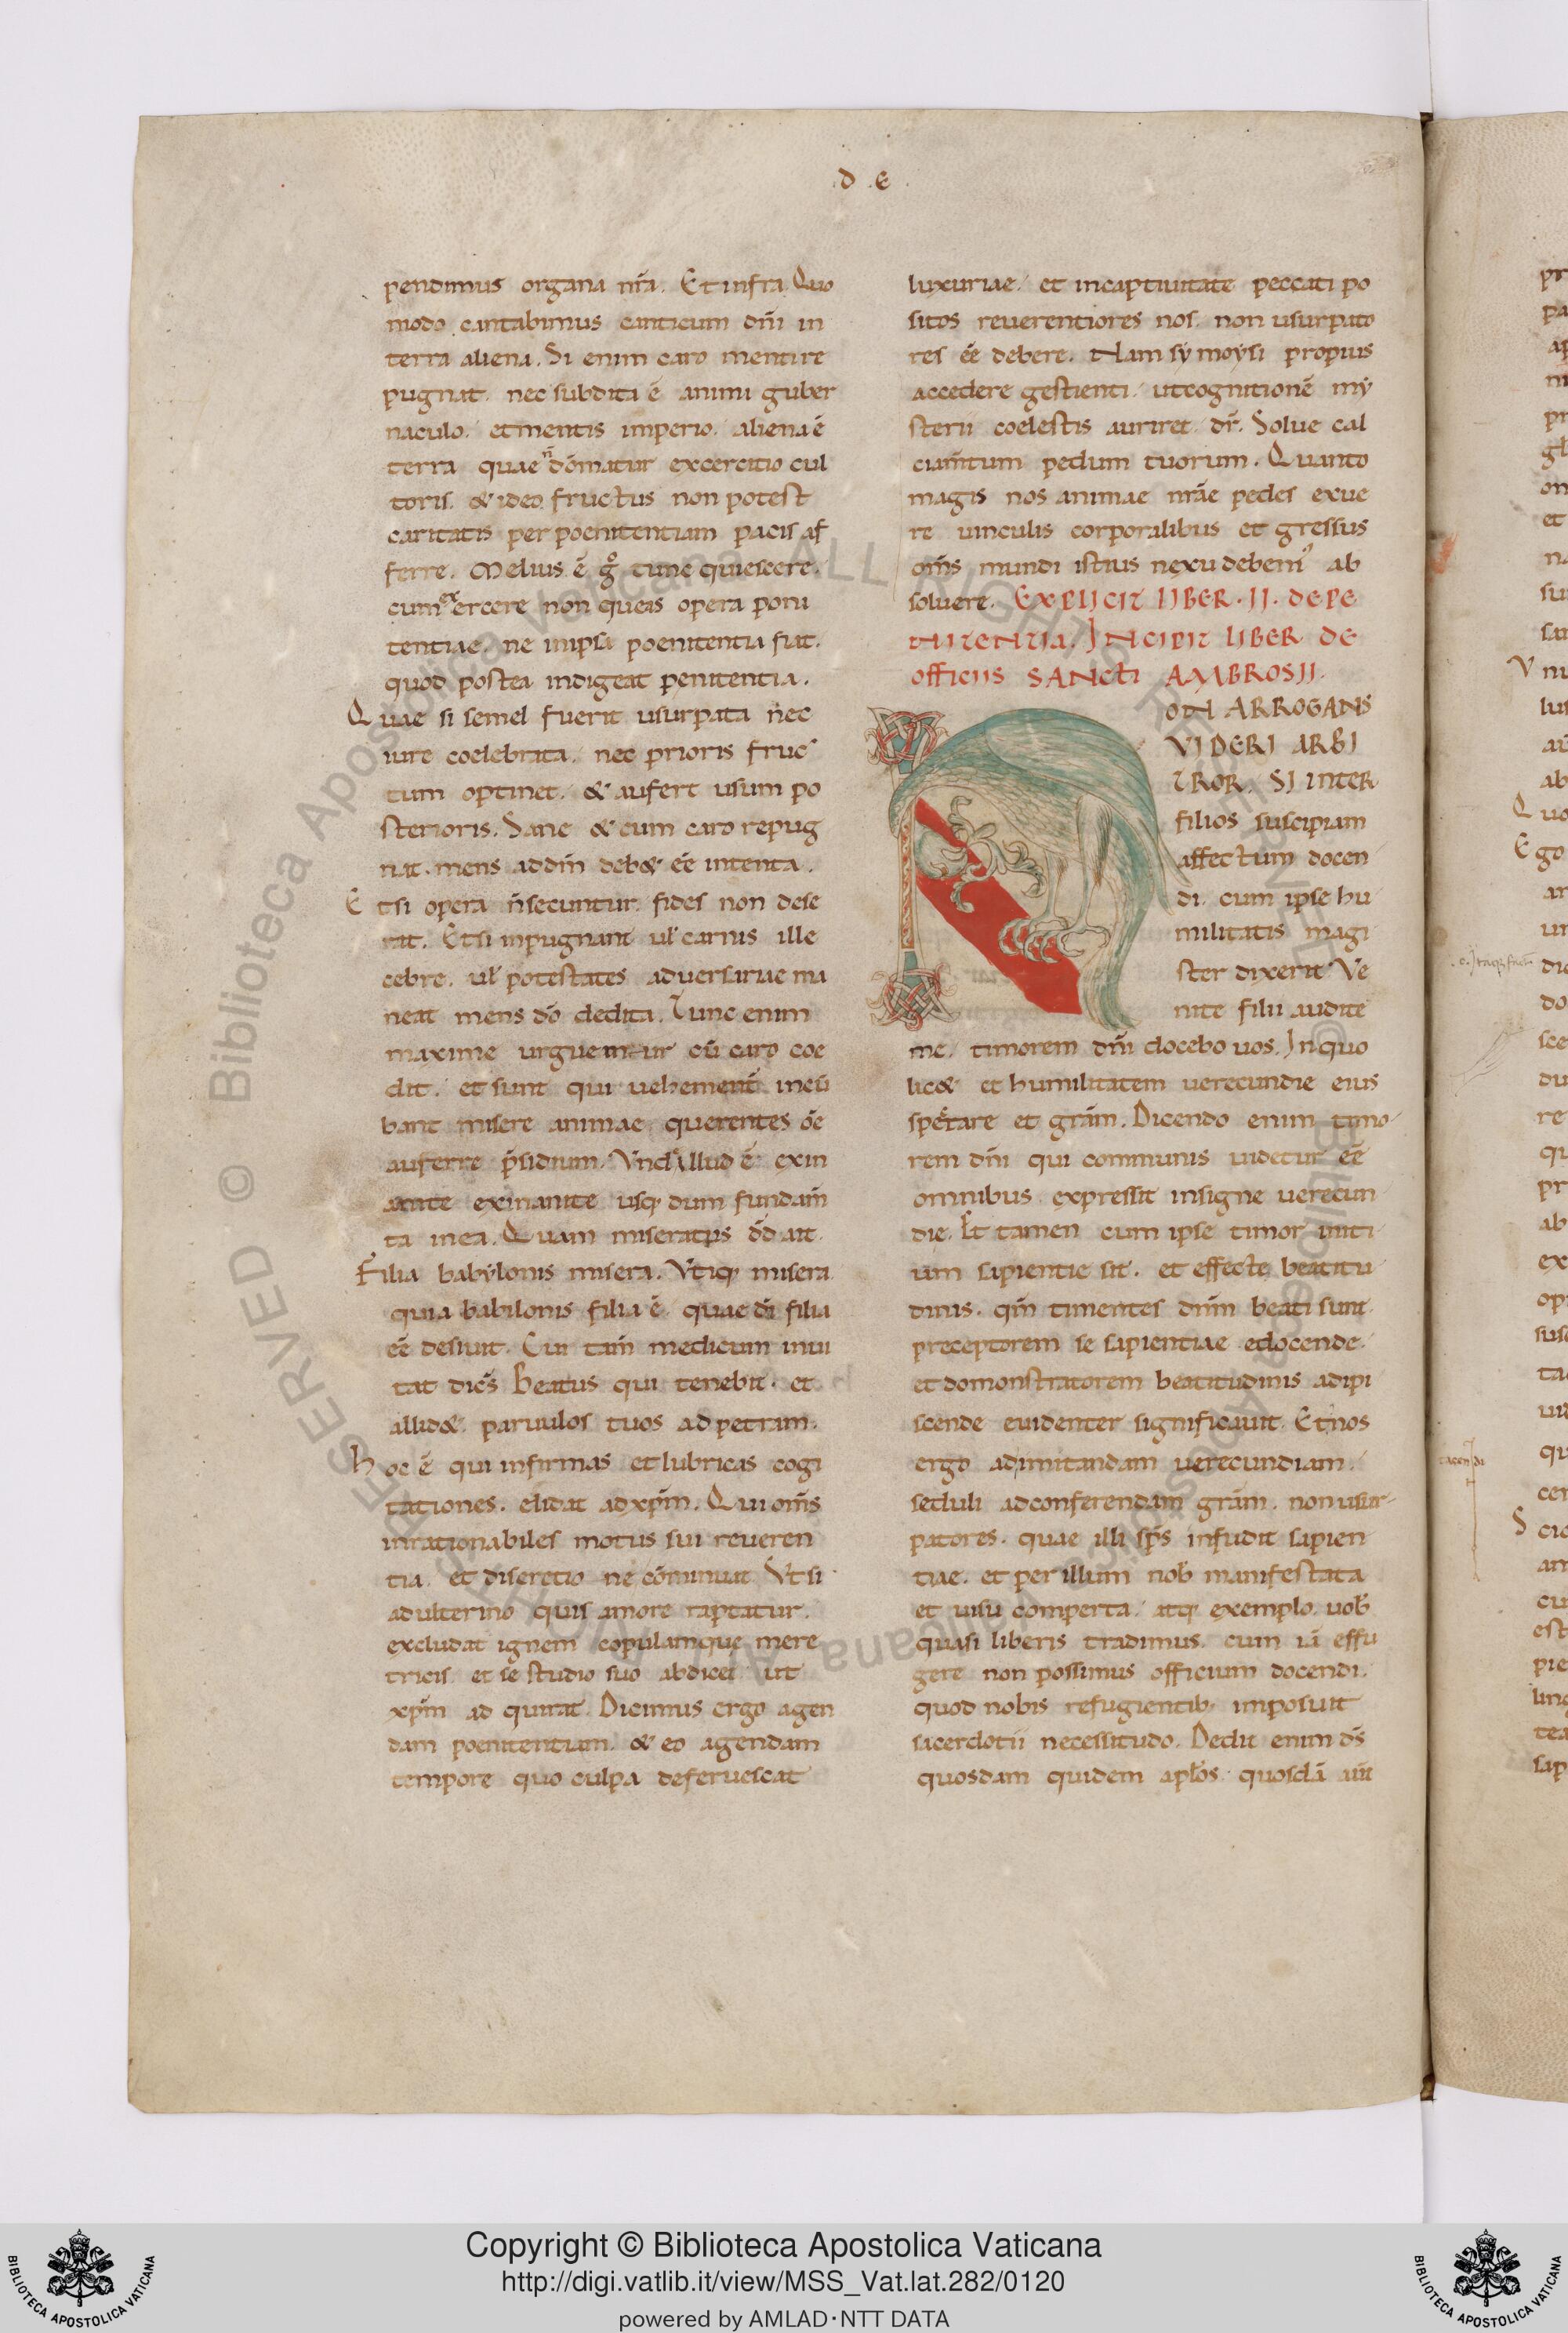 .d .e.
pendimus organa nr̄a. Et infra. Quo
modo cantabimus canticum dn̄i in
terra aliena. Si enim caro menti re
pugnat. nec subdita ē animi guber
naculo. et mentis imperio. aliena ē
terra quae n̄ domatur excercitio cul
toris. & ideo fructus non potest
caritatis per poenitentiam pacis af
ferre. Melius ē gͦ tunc quiescere.
cum exercere non queas opera poni
tentiae. ne in ipsa poenitentia fiat.
quod postea indigeat penitentia.
Quae si semel fuerit usurpata nec
iure coelebrata. nec prioris fruc
tum optinet. & aufert usum po
sterioris. Sane & cum caro repug
nat. mens ad dm̄ deb& eē intenta.
Et si opera n̄ secuntur. fides non dese
rat. Et si inpugnant ul̄ carnis ille
cebre. ul̄ potestates aduersariae ma
neat mens dō dedita. Tunc enim
maxime urguemur cū caro coe
dit. et sunt qui uehement̄ incū
bant misere animae querentes oē
auferre p̄sidium. Vnde illud ē exin
anite exinanite usq; dum fundam̄
ta in ea. Quam miserat̄ p̄s dd̄ ait.
Filia babylonis misera. Vtiq; misera
quia babilonis filia ē. quae dī filia
eē desiuit. Cui tam̄ medicum inui
tat dic̄s Beatus qui tenebit. et
allid& paruulos tuos ad petram.
Hoc ē qui infirmas et lubricas cogi
tationes. elidat ad xp̄m. Qui om̄s
inrationabiles motus sui reueren
tia. et discretio ne cōminuit. Vt si
adulterino quis amore raptatur.
excludat ignem copulamque mere
tricis et se studio suo abdicet ut
xp̄m adquirat. Dicimus ergo agen
dam poenitentiam. & eo agendam
tempore quo culpa deferuescat
luxuriae. et in captiuitate peccati po
sitos reuerentiores nos. non usurpato
res eē debere. Nam sy moysi propius
accedere gestienti. ut cognitionē my
sterii coelestis auriret dr̄. Solue cal
ciam̄tum pedum tuorum. Quanto
magis nos animae nr̄ae pedes exue
re uinculis corporalibus et gressus
om̄s mundi istius nexu debem' ab
soluere. EXPLICIT LIBER .II. DE PE
NITENTIA. INCIPIT LIBER DE
OFFICIIS SANCTI AMBROSII.
NON ARROGANS
VIDERI ARBI
TROR. SI INTER
filios suscipiam
affectum docen
di. cum ipse hu
militatis magi
ster dixerit Ve
nite filii audite
me. timorem dn̄i docebo uos. In quo
lic& et humilitatem uerecundie eius
spectare et grām. Dicendo enim timo-
rem dn̄i qui communis uidetur eē
omnibus expressit insigne uerecun
die. Et tamen cum ipse timor initi
um sapientie sit. et effecte beatitu
dinis. qm̄ timentes dn̄m beati sunt.
preceptorem se sapientiae edocende.
et domonstratorem beatitudinis adipi
scende euidenter significauit. Et nos
ergo ad imitandam uerecundiam.
seduli ad conferendam grām. non usur-
patores. quae illi sp̄s infudit sapien
tiae. et per illum nob̄ manifestata
et uisu comperta. atq; exemplo. uob̄
quasi liberis tradimus. cum iā effu
gere non possimus officium docendi.
quod nobis refugientib; imposuit
sacerdotii necessitudo. Dedit enim ds̄
quosdam quidem apl̄os. quosdā aūt
Copyright © Biblioteca Apostolica Vaticana
http://digi.vatlib.it/view/MSS_Vat.lat.282/0120
powered by AMLAD·NTT DATA